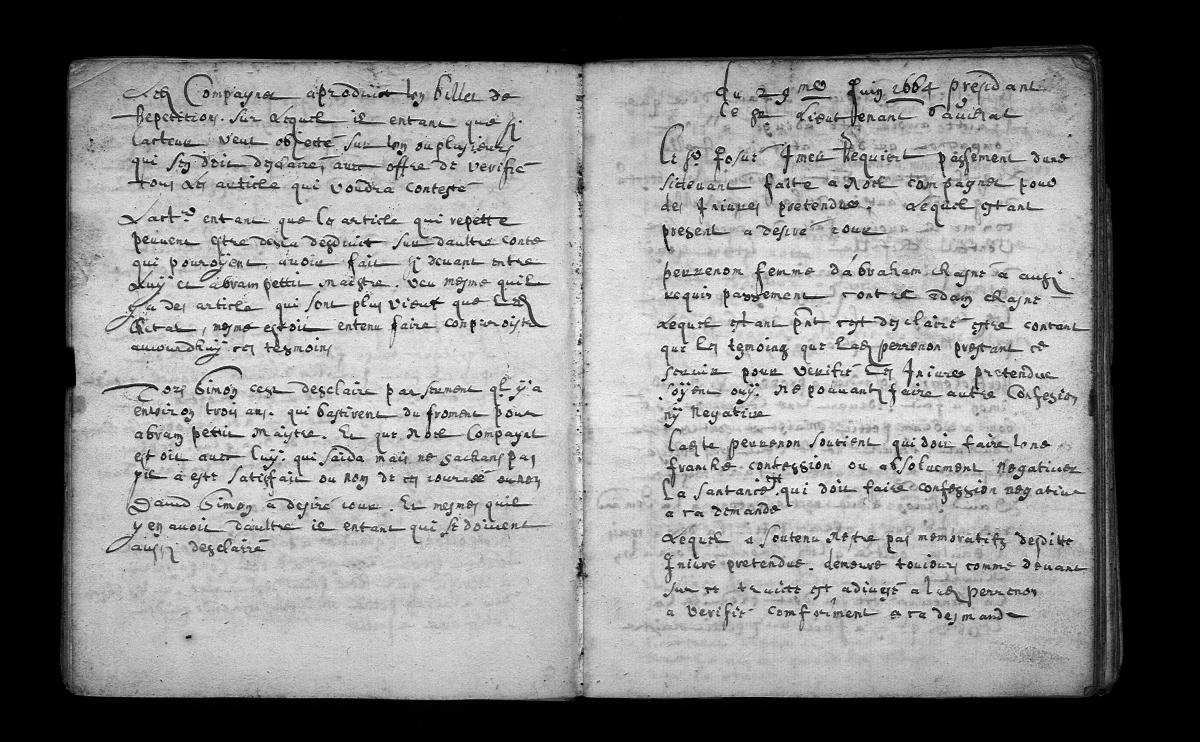 Led Compagnet a produict son billet de
Repetition. Sur Lequel il entant que si
Lacteur veut obiecté sur lon ou plusieurs
qui sen doit desclairé, avec offre de verifié
tous Les article qui voudra contesté
Lactr entant que les article qui repette
peuvent estre desduict sur daultre conte
qui pouroyent avoir fait ci devant entre
Luy et abram pettit Maistre. Veu mesme quil
y a des article qui sont plus vieux que Led
mesme estoit entenu faire comparroistre
auiourdhuy ces tesmoins
Simon cest desclairé par serment ql y a
environ trois ans. qui bastirent du froment pour
abram pettit Maistre. Et que Noel Compagnet
estoit avec luy. qui saida mais ne sachans pas
sil a esté satisfait ou non de ces iournée ou non
David Simon a desiré iour. Et mesmes quil
y en avoit daultre il entant qui se doivent
aussi desclairé
Du 29me Juin 1664 presidant
le Sr Lieutenant
Le Sr Josué Requiert passement dune
sidevant faitte a Noel compagnet pour
des Iniures pretendue. Lequel estant
present a desiré iour
perrenon femme dabraham a aussi
requis passement contre adam
Lequel estant pnt cest desclairé estre contant
que les temoins que Lad perrenon presant ce
servir pour verifié les Iniures pretendue
soyent ouy. Ne pouvant faire autre Confession
ny Negative
Ladte perrenon soutient qui doit faire lone
franche confession ou absoluement negativer
La santance est qui doit faire confession negative
a ca demande
Lequel a soutenu Nestre pas memoratifz desditte
Iniure pretendue. demeure toujours comme devant
sur ce est adiugé a lad perrenon
a verifié confermement a ca demande